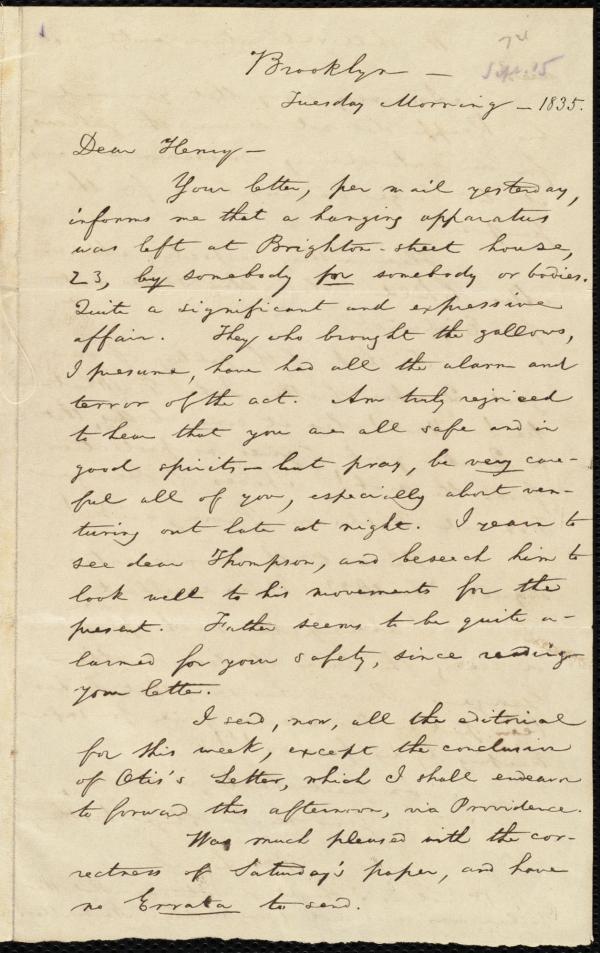 Brooklyn —
Sept. 15
Tuesday Morning — 1835.
Dear Henry —
Your letter, per mail yesterday,
informs me that a hanging apparatus
was left at Brighton-street house,
23, by somebody for somebody or bodies.
Quite a significant and expressive
affair. They who brought the gallows,
I presume, have had all the alarm and
terror of the act. Am truly rejoiced
to hear that you are all safe and in
good spirits — but pray, be very care-
ful all of you, especially about ven-
turing out late at night. I yearn to
see dear Thompson, and beseech him to
look well to his movements for the
present. Father seems to be quite a-
larmed for your safety, since reading
your letter.
I send, now, all the editorial
for this week, except the conclusion
of Otis's Letter, which I shall endeavor
to forward this afternoon, via Providence.
Was much pleased with the cor-
rectness of Saturday's paper, and have
no Errata to send.